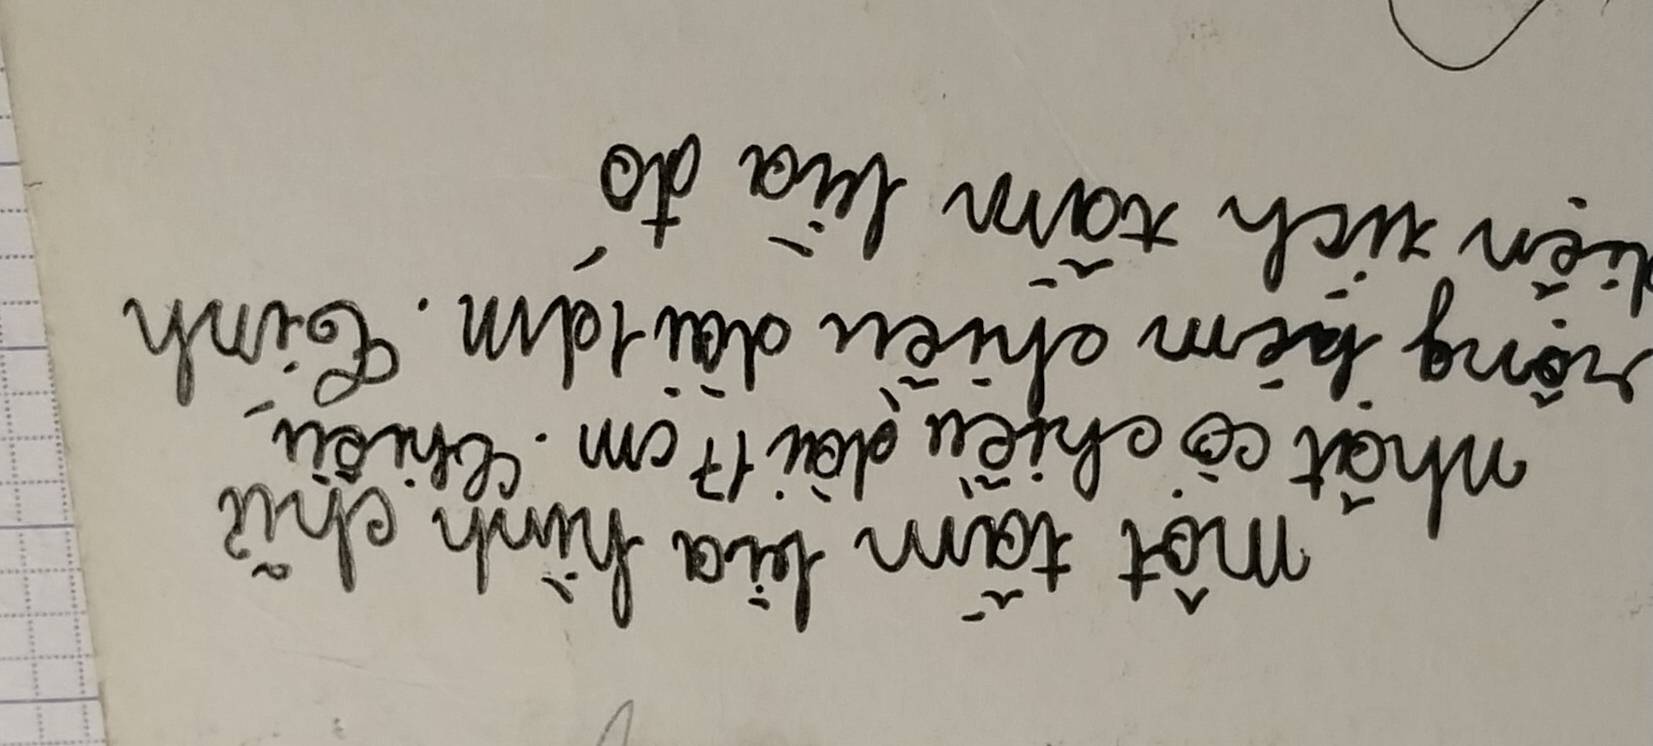 một tấm bìa hình chữ
nhật có chiều dài 17 cm. Chiều
rộng kém chiều dài 1dm. Tính
diện tích tấm bìa đó